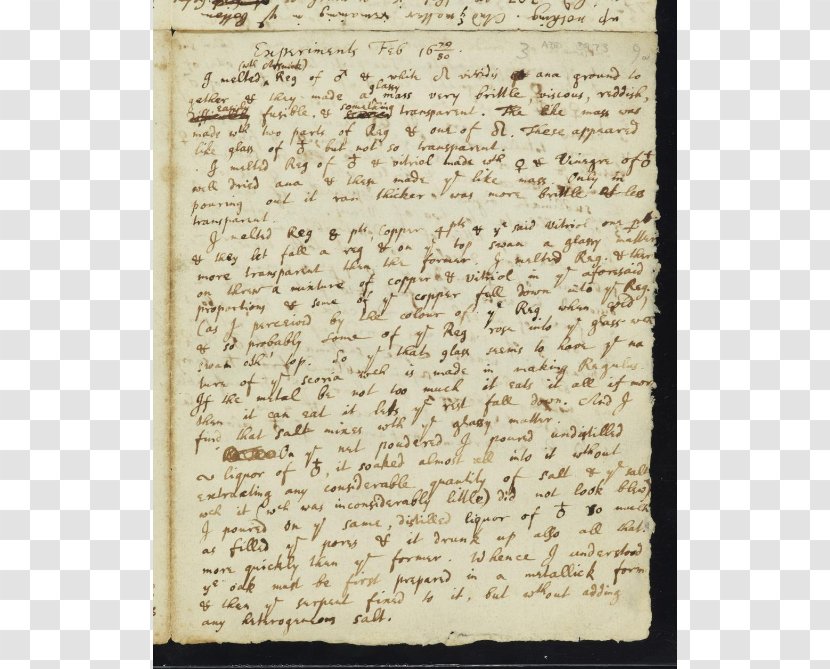 Experiments Feb 16 79/80.
(wth Arsnick)
I melted Reg of ♂ & white viridis ana ground to
glassy
gether & they made a mass very brittle, viscous, reddish,
easily fusible, & something transparent. The like mass was
made wth two parts of Reg & one of These appeared
like glass of ♁ but not so transparent.
I melted Reg of ♁ & vitriol made wth ♀ & Vinegre of ♁
well dried ana & these made ye like mass. Only in
pouring out it ran thicker & was more brittle & less
transparent.
I melted Reg 8 pts, Copper 4 pts & ye said Vitriol one pt
& they let fall a reg & on ye top swam a glassy matter
more transparent then the former. I melted Reg. & then
on threw a mixture of copper & vitriol in ye aforesaid
proportions & some of ye copper fell down into ye Reg.
(as I perceived by the colour of ye Reg when cold)
& so probably some of ye Reg rose into ye glass wch
swam on top. So yt that glass seems to have ye na
ture of ye scoria wch is made in making Regulus.
If the metal be not too much it eats it all if more
then it can eat it lets ye rest fall down. And I
find that salt mixes wth ye glassy matter.
On ye net poudered I poured undistilled
liquor of ♁, it soaked almost all into it without
extracting any considerable quantity of salt & ye salt
wch it (wch was inconsiderably little) did not look blew
I poured on ye same, distilled liquor of ♁ so much
as filled ye pores & it drunk up also all that
more quickly then ye former. Whence I understood
ye oak must be first prepared in a metallick form
& then ye serpent fixed to it, but without adding
any heterogeneous salt.